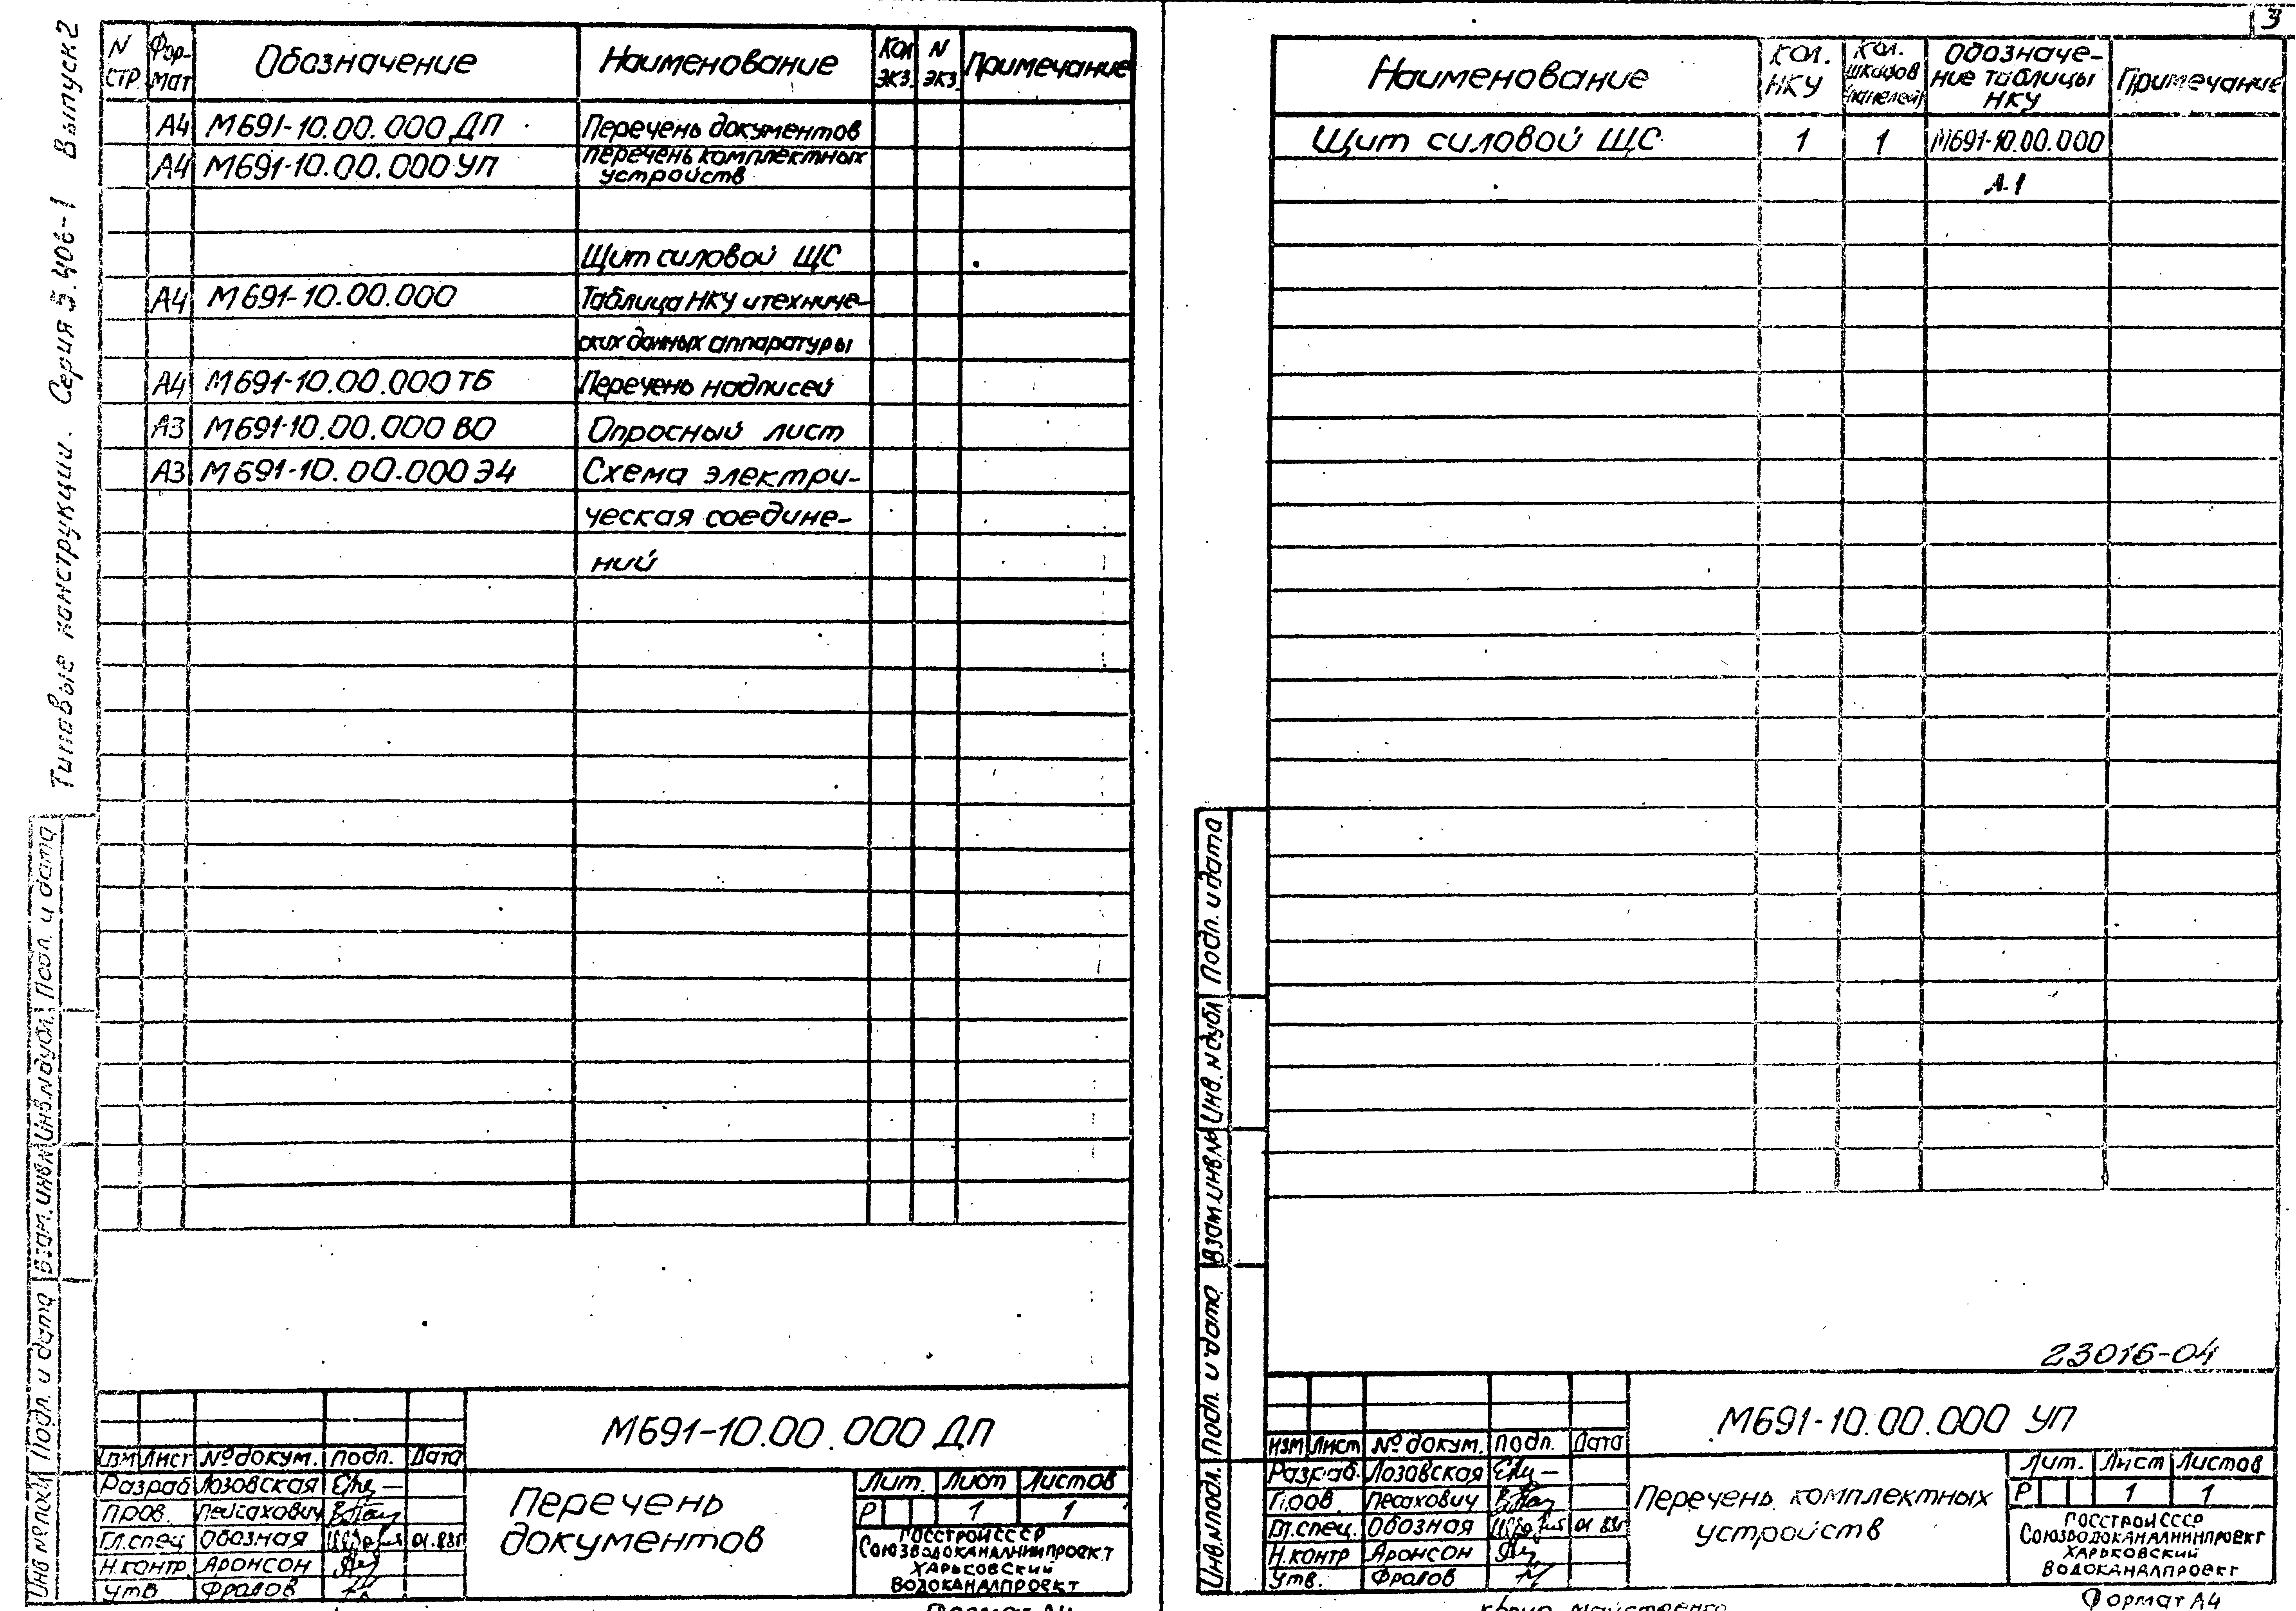 Типовые конструкции. Серия 5.406-1 Выпуск 2
N стр. Фор-мат Обозначение Наименование Кол экз. N экз. Примечание
А4 М691-10.00.000 ДП Перечень документов
А4 М691-10.00.000 УП Перечень комплектных
устройств
Щит силовой ЩС
А4 М691-10.00.000 Таблица НКУ и техниче-
ских данных аппаратуры
А4 М691-10.00.000 ТБ Перечень надписей
А3 М691-10.00.000 ВО Опросный лист
А3 М691-10.00.000 Э4 Схема электри-
ческая соедине-
ний
Инв № подл Подп. и дата Взам. инв. № Инв. № дубл. Подп. и дата
М691-10.00.000 ДП
Изм Лист № докум. Подп. Дата
Разраб Лозовская
Пров. Пейсахович
Гл. спец Обозная 01.83г
Н.контр. Аронсон
Утв Фролов
Перечень
документов
Лит. Лист Листов
Р 1 1
Госстрой СССР
Союзводоканалниипроект
Харьковский
Водоканалпроект
Формат А4
3
Наименование Кол. НКУ Кол. шкафов (панелей) Обозначе-ние таблицы НКУ Примечание
Щит силовой ЩС 1 1 М691-10.00.000
Л.1
Инв. № подл. Подп. и дата Взам. инв. № Инв. № дубл Подп. и дата
23016-04
М691-10.00.000 УП
Изм Лист № докум. Подп. Дата
Разраб. Лозовская
Пров. Песахович
Гл. спец. Обозная 01 83г
Н.контр Аронсон
Утв. Фролов
Перечень комплектных
устройств
Лит. Лист Листов
Р 1 1
Госстрой СССР
Союзводоканалниипроект
Харьковский
Водоканалпроект
Формат А4